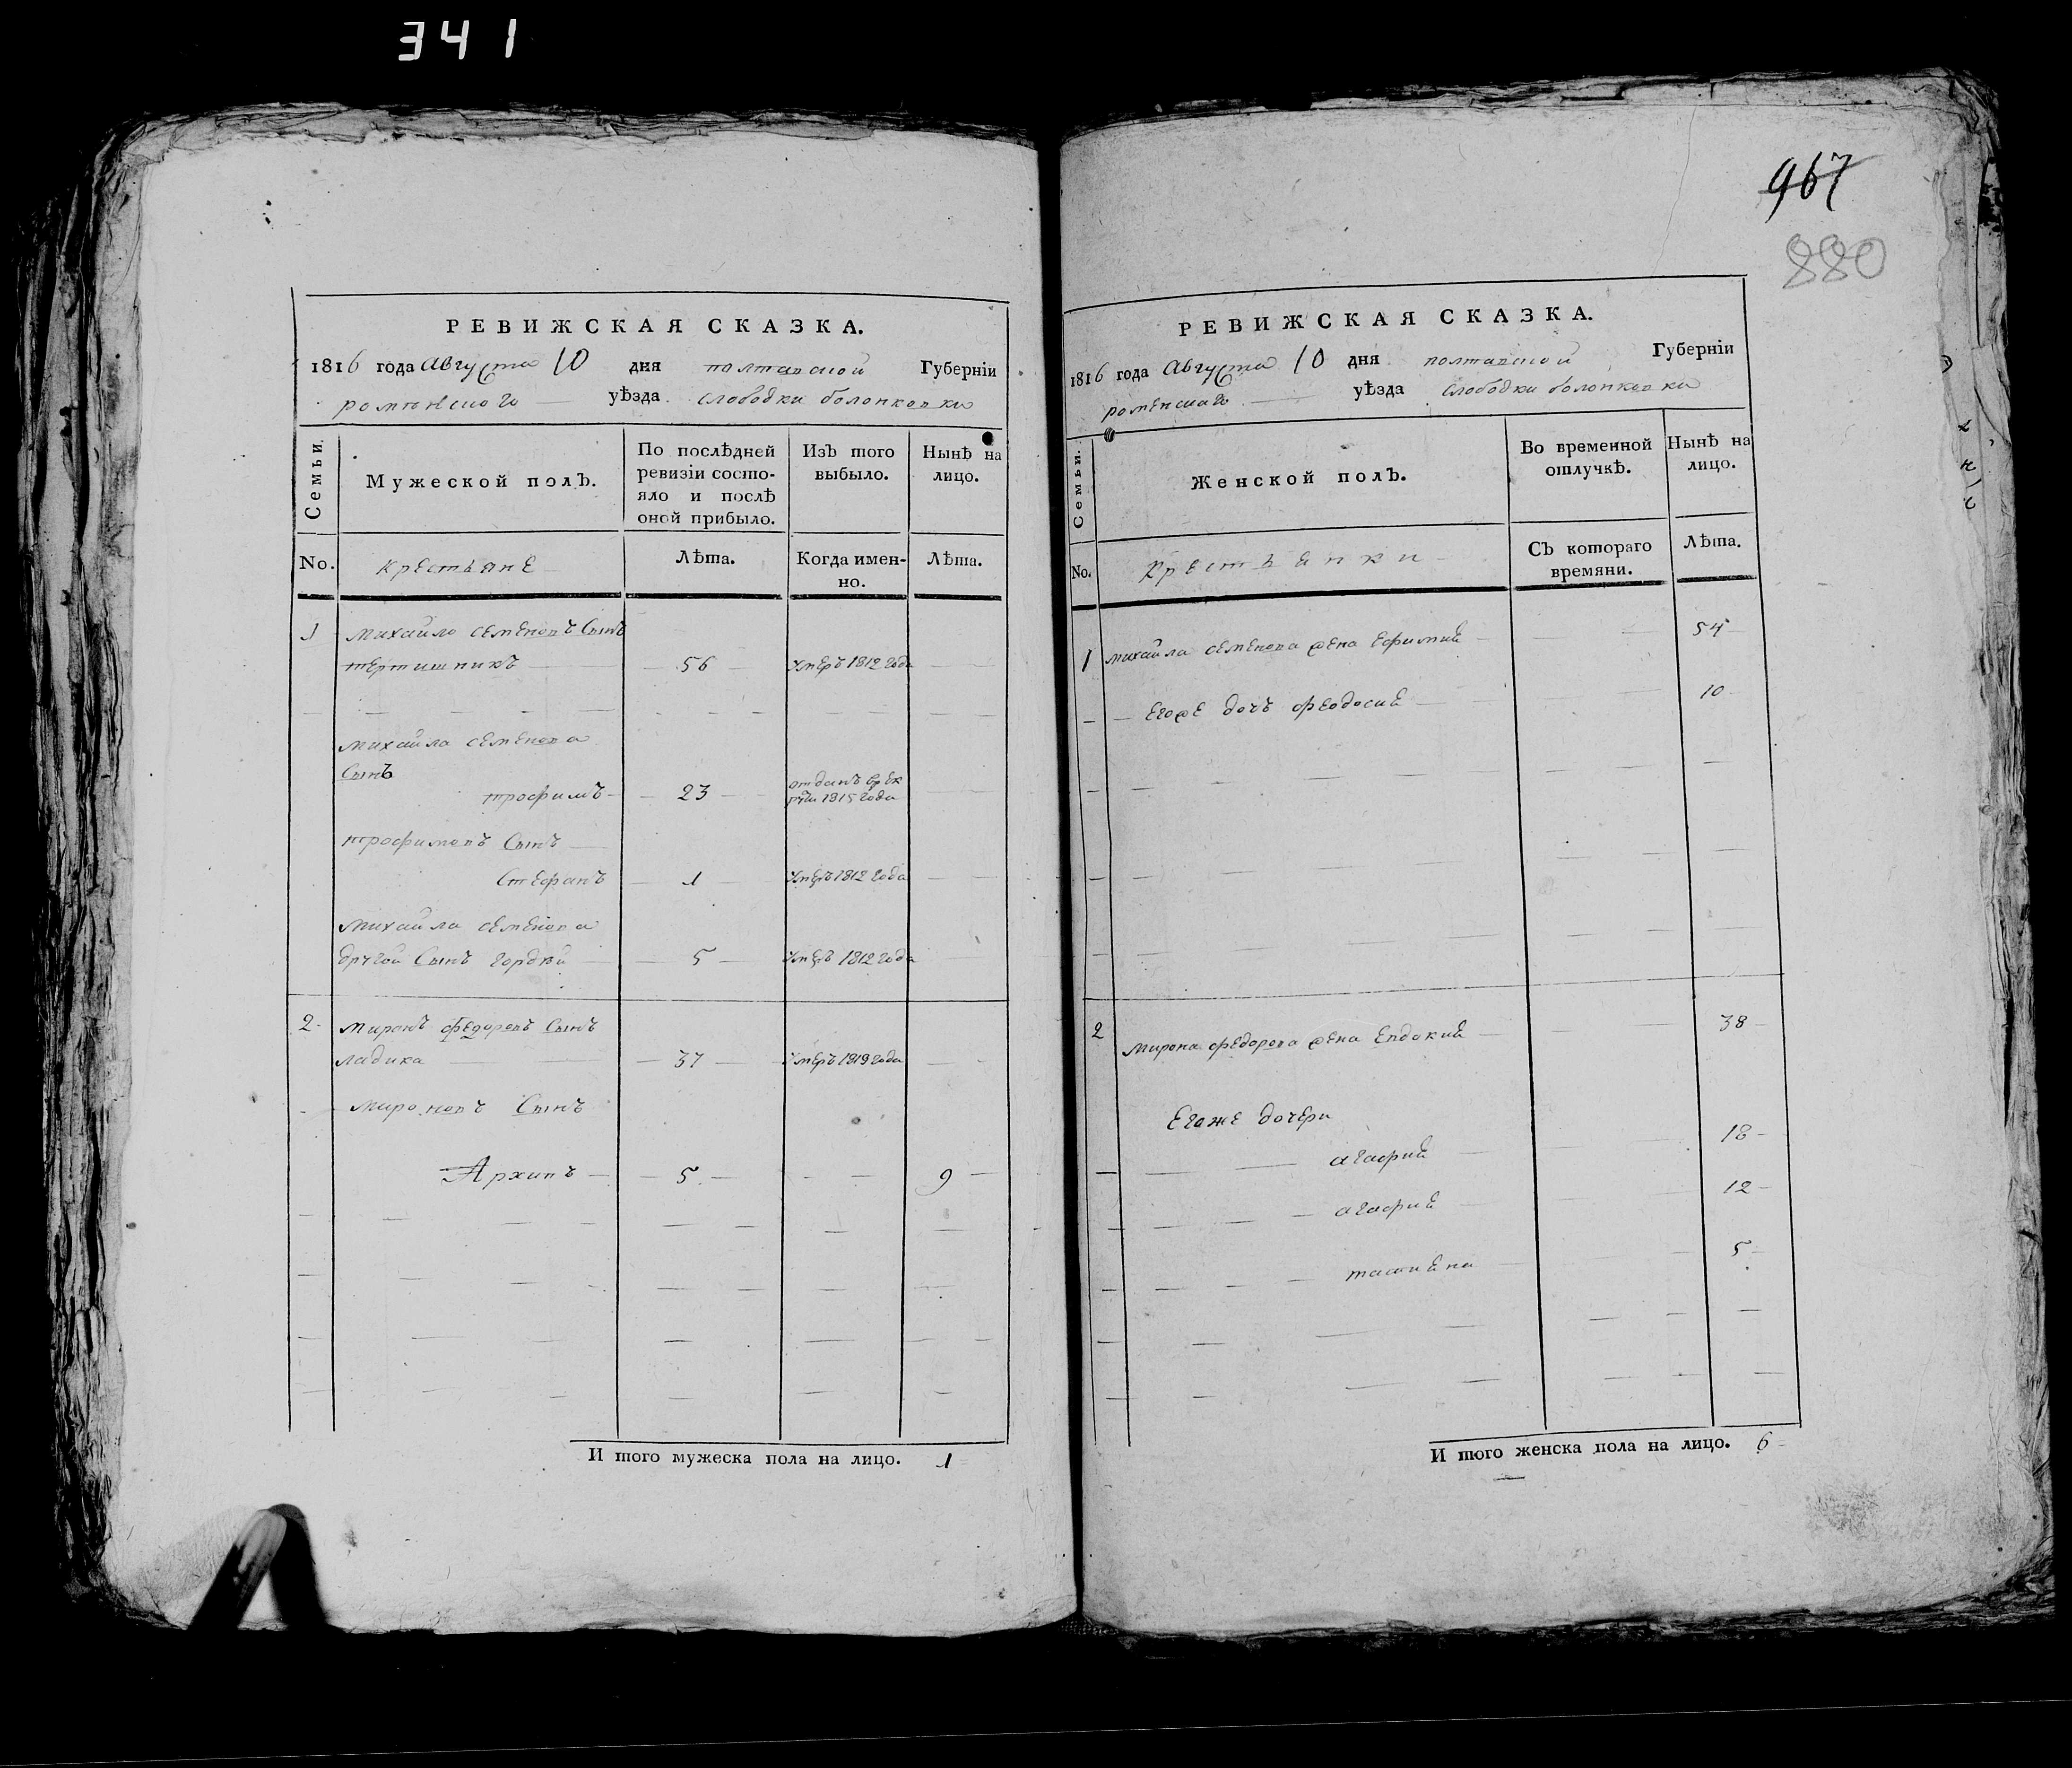 341
РЕВИЖСКАЯ СКАЗКА.
1816 года Августа 10 дня полтавской Губернїи
роменского уѣзда слободки болопковки
Семьи.
Мужеской полъ.
По послѣдней ревизїи состо-
яло и послѣ
оной прибыло.
Изъ того
выбыло.
Нынѣ на
лицо.
No.
крестьяне
Лѣта.
Когда имен-
но.
Лѣта.
1 михайло семеновъ Сынъ
тертишникъ 56 Умеръ 1812 года
михайла семенова
Сынъ
трофимъ 23 отданъ врек
руты 1815 года
трофимовъ Сынъ
Стефанъ 1 Умеръ 1812 года
михайла семенова
другой Сынъ гордѣй 5 Умеръ 1812 года
2 миронъ федоровъ Сынъ
ладика 37 Умеръ 1813 года
мироновъ Сынъ
Архипъ 5 9
И того мужеска пола на лицо. 1
967
880
РЕВИЖСКАЯ СКАЗКА.
1816 года Августа 10 дня полтавской Губернїи
роменскаго уѣзда слободки болопковки
Семьи.
Женской полъ.
Во временной
отлучкѣ.
Нынѣ на
лицо.
No.
крестьянки
Съ котораго
времяни.
Лѣта.
1 михайла семенова жена Ефимия 54
Егоже дочъ феодосия 10
2 мирона федорова жена Евдокия 38
Егоже дочери
агафия 18
агафия 12
татияна 5
И того женска пола на лицо. 6